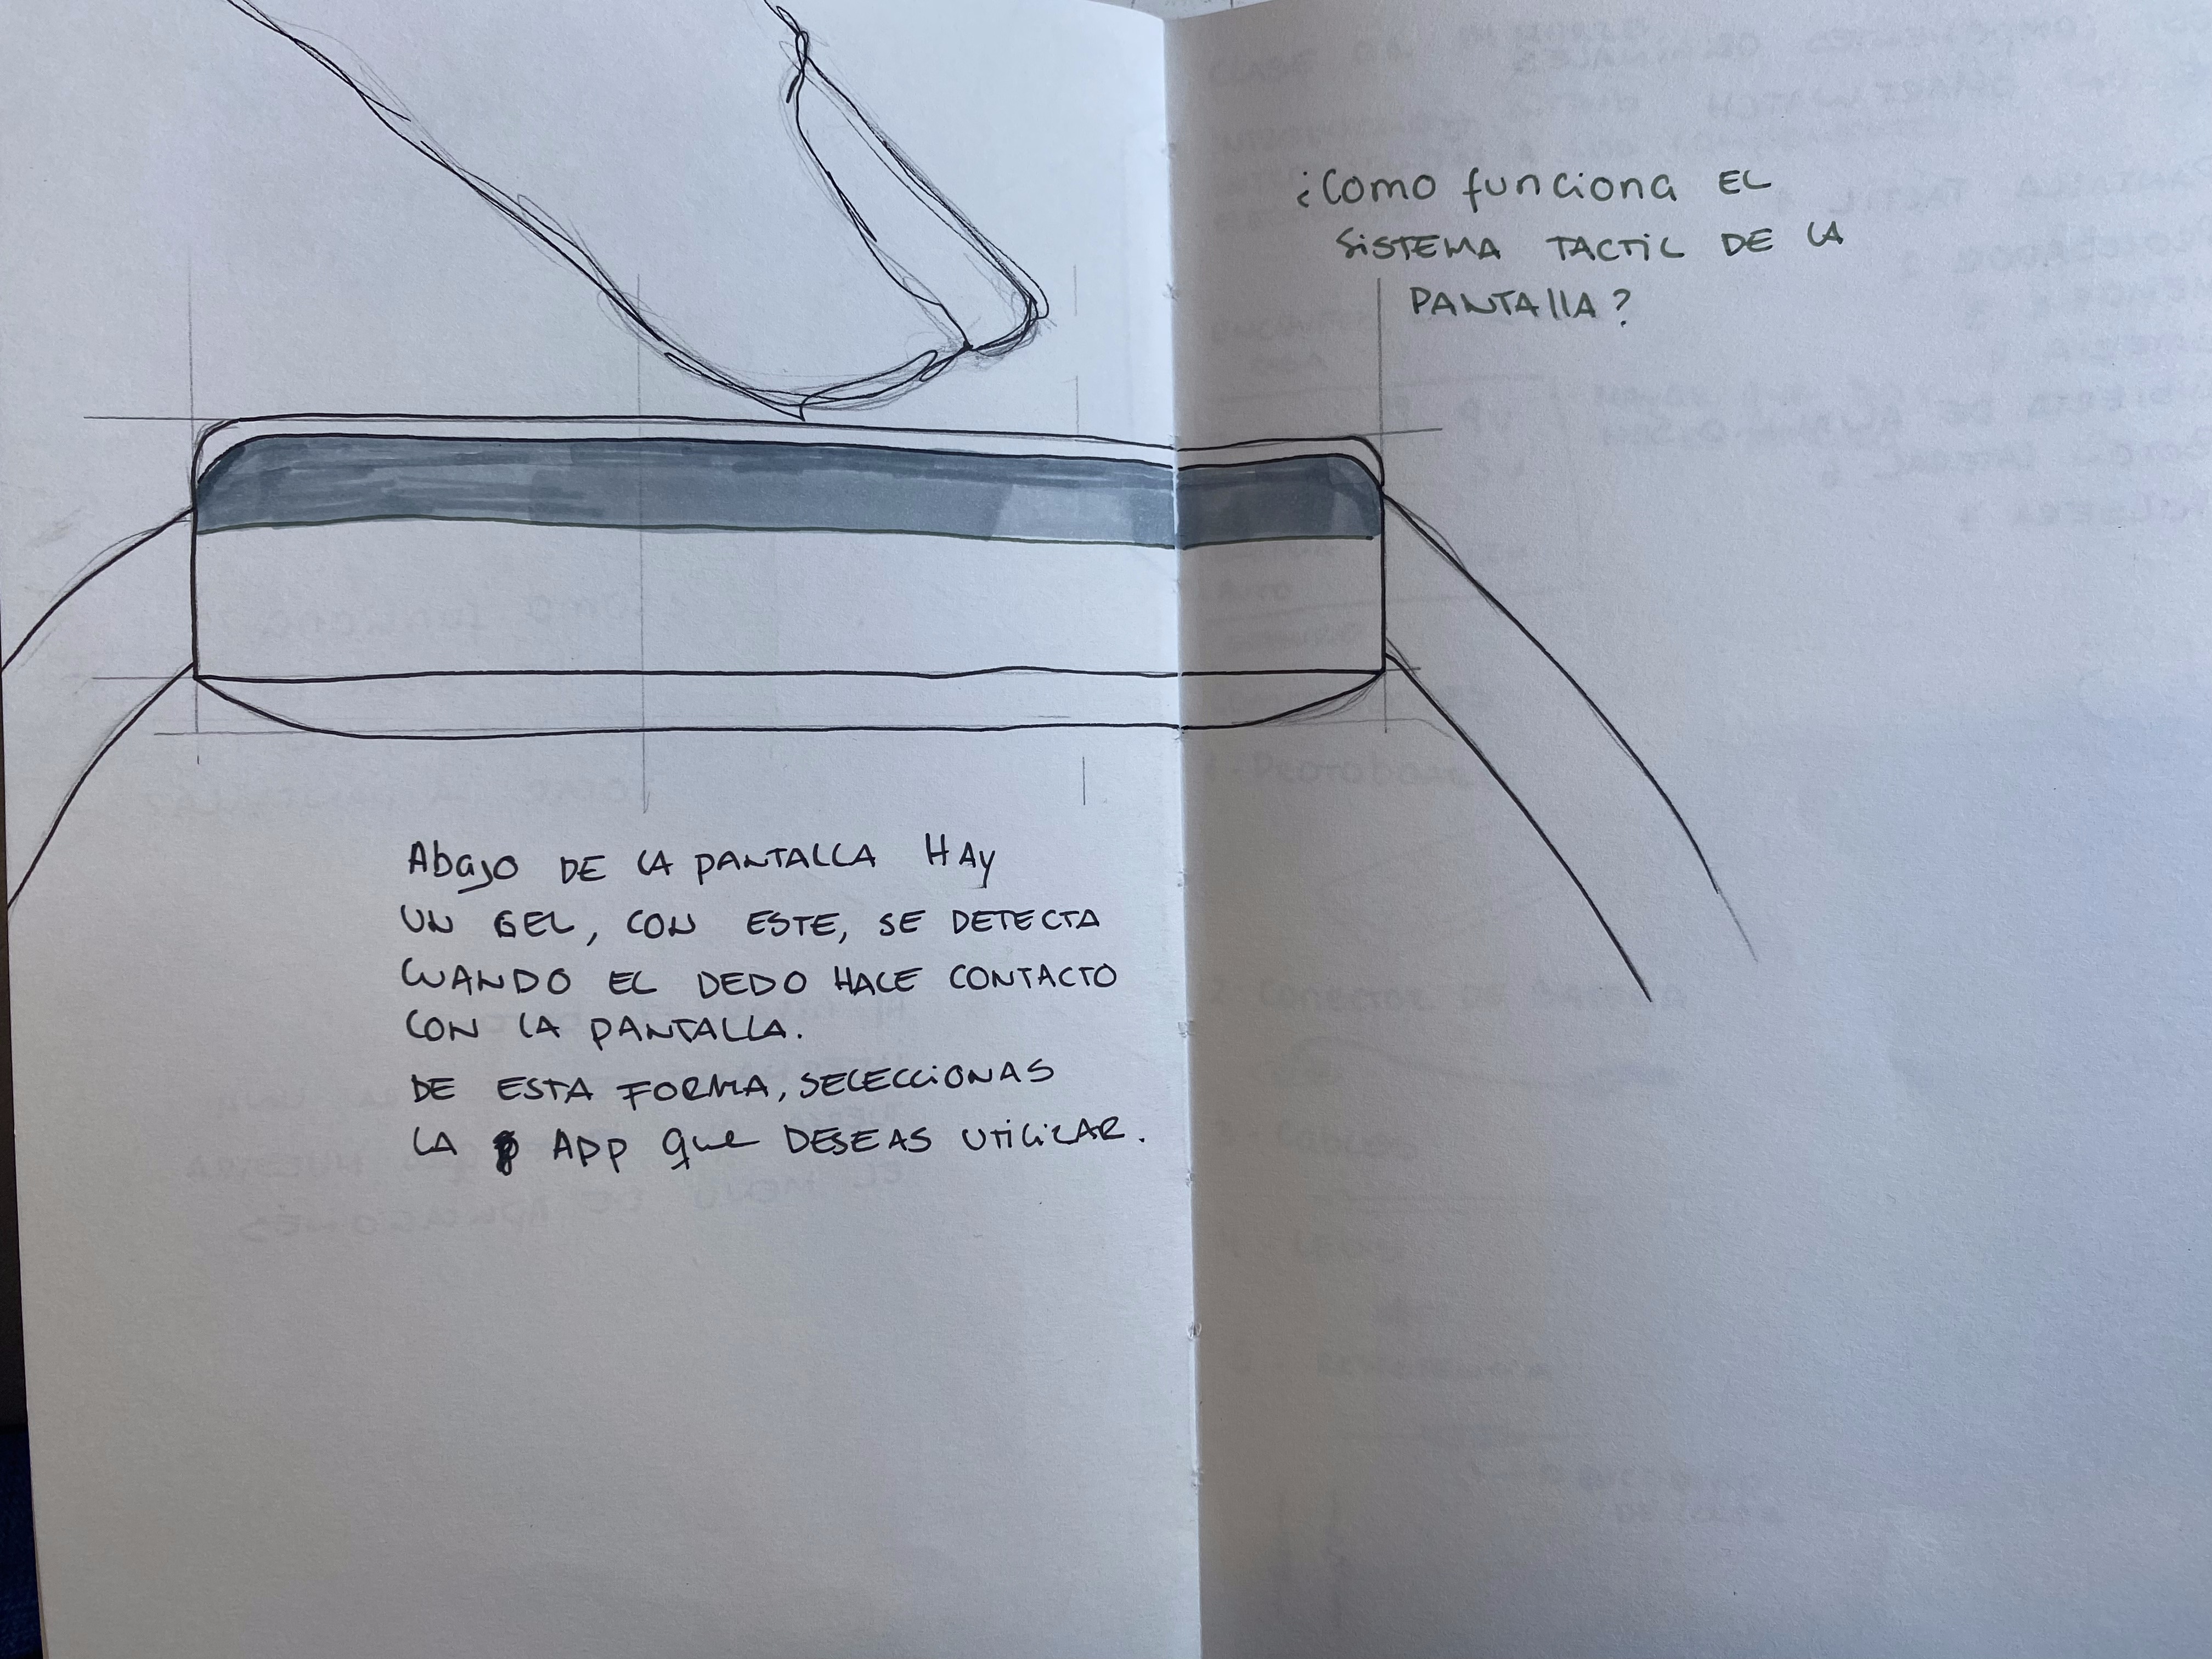 ¿Como funciona EL
SiSTEMA TACTiL DE LA
PANTAllA?
Abajo DE LA PANTALLA HAy
UN GEL, CON ESTE, SE DETECTA
CUANDO EL DEDO HACE CONTACTO
CON LA PANTALLA.
DE ESTA FORMA, SELECCiONAS
LA APP que DESEAS UTiLiZAR.